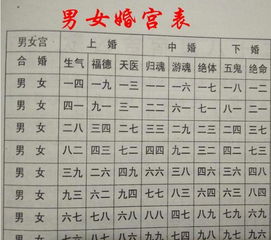 男女婚宫表
男女宫 上婚 中婚 下婚
合婚 生气 福德 天医 归魂 游魂 绝体 五鬼 绝命
男女 一四 一九 一三 一一 一六 一七 一八 一二
男女 四一 九一 三一 六一 七一 八一 二一
男女 二八 三四 二七 二九 二三 二四 三七
男女 八二 四三 七二 四四 九二 三二 四二 七三
男女 三九 二六 四九 六六 三八 四六 三六 四八
男女 九三 六二 九四 七七 八三 六四 六三 八四
男女 六七 七八 六八 八八 四七 八九 七九 六九
男女 七六 八七 八六 九九 七四 九八 九七 九六